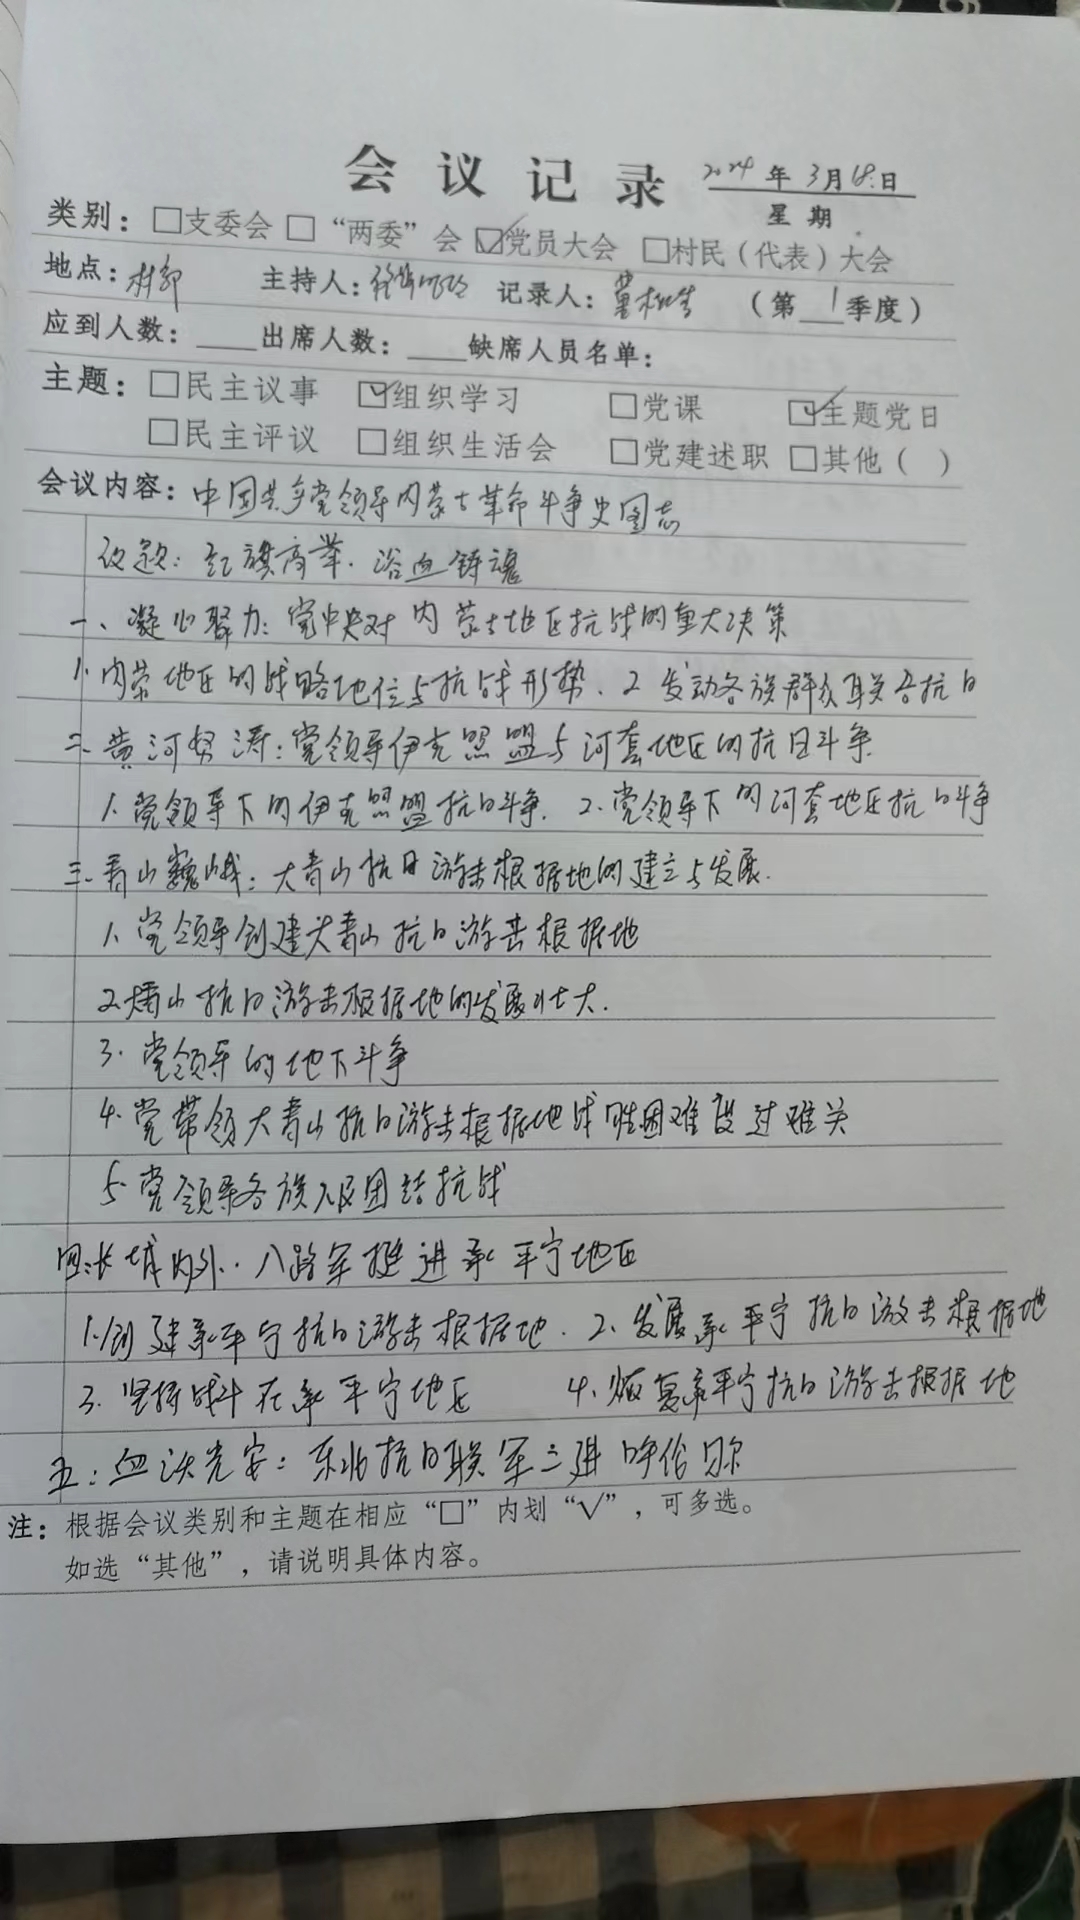 会议记录 2024年3月18日
星期
类别：□支委会 □“两委”会 ☑党员大会 □村民（代表）大会
地点：村部 主持人： 记录人： （第1季度）
应到人数：____出席人数：____缺席人员名单：
主题：□民主议事 ☑组织学习 □党课 ☑主题党日
□民主评议 □组织生活会 □党建述职 □其他（ ）
会议内容：中国共产党领导内蒙古革命斗争史图志
议题：红旗高举.浴血铸魂
一、凝心聚力：党中央对内蒙古地区抗战的重大决策
1、内蒙地区的战略地位与抗战形势、2 发动各族群众联合抗日
二、黄河怒涛：党领导伊克昭盟与河套地区的抗日斗争
1、党领导下的伊克昭盟抗日斗争. 2、党领导下的河套地区抗日斗争
三、青山巍峨：大青山抗日游击根据地的建立与发展.
1、党领导创建大青山抗日游击根据地
2、青山抗日游击根据地的发展壮大.
3. 党领导的地下斗争
4. 党带领大青山抗日游击根据地战胜困难度过难关
5. 党领导各族人民团结抗战
四：长城内外.. 八路军挺进承平宁地区
1、创建承平宁抗日游击根据地. 2、发展承平宁抗日游击根据地
3. 坚持战斗在承平宁地区 4、恢复承平宁抗日游击根据地
五：血沃兴安：东北抗日联军三进呼伦贝尔
注：根据会议类别和主题在相应“□”内划“√”，可多选。
如选“其他”，请说明具体内容。